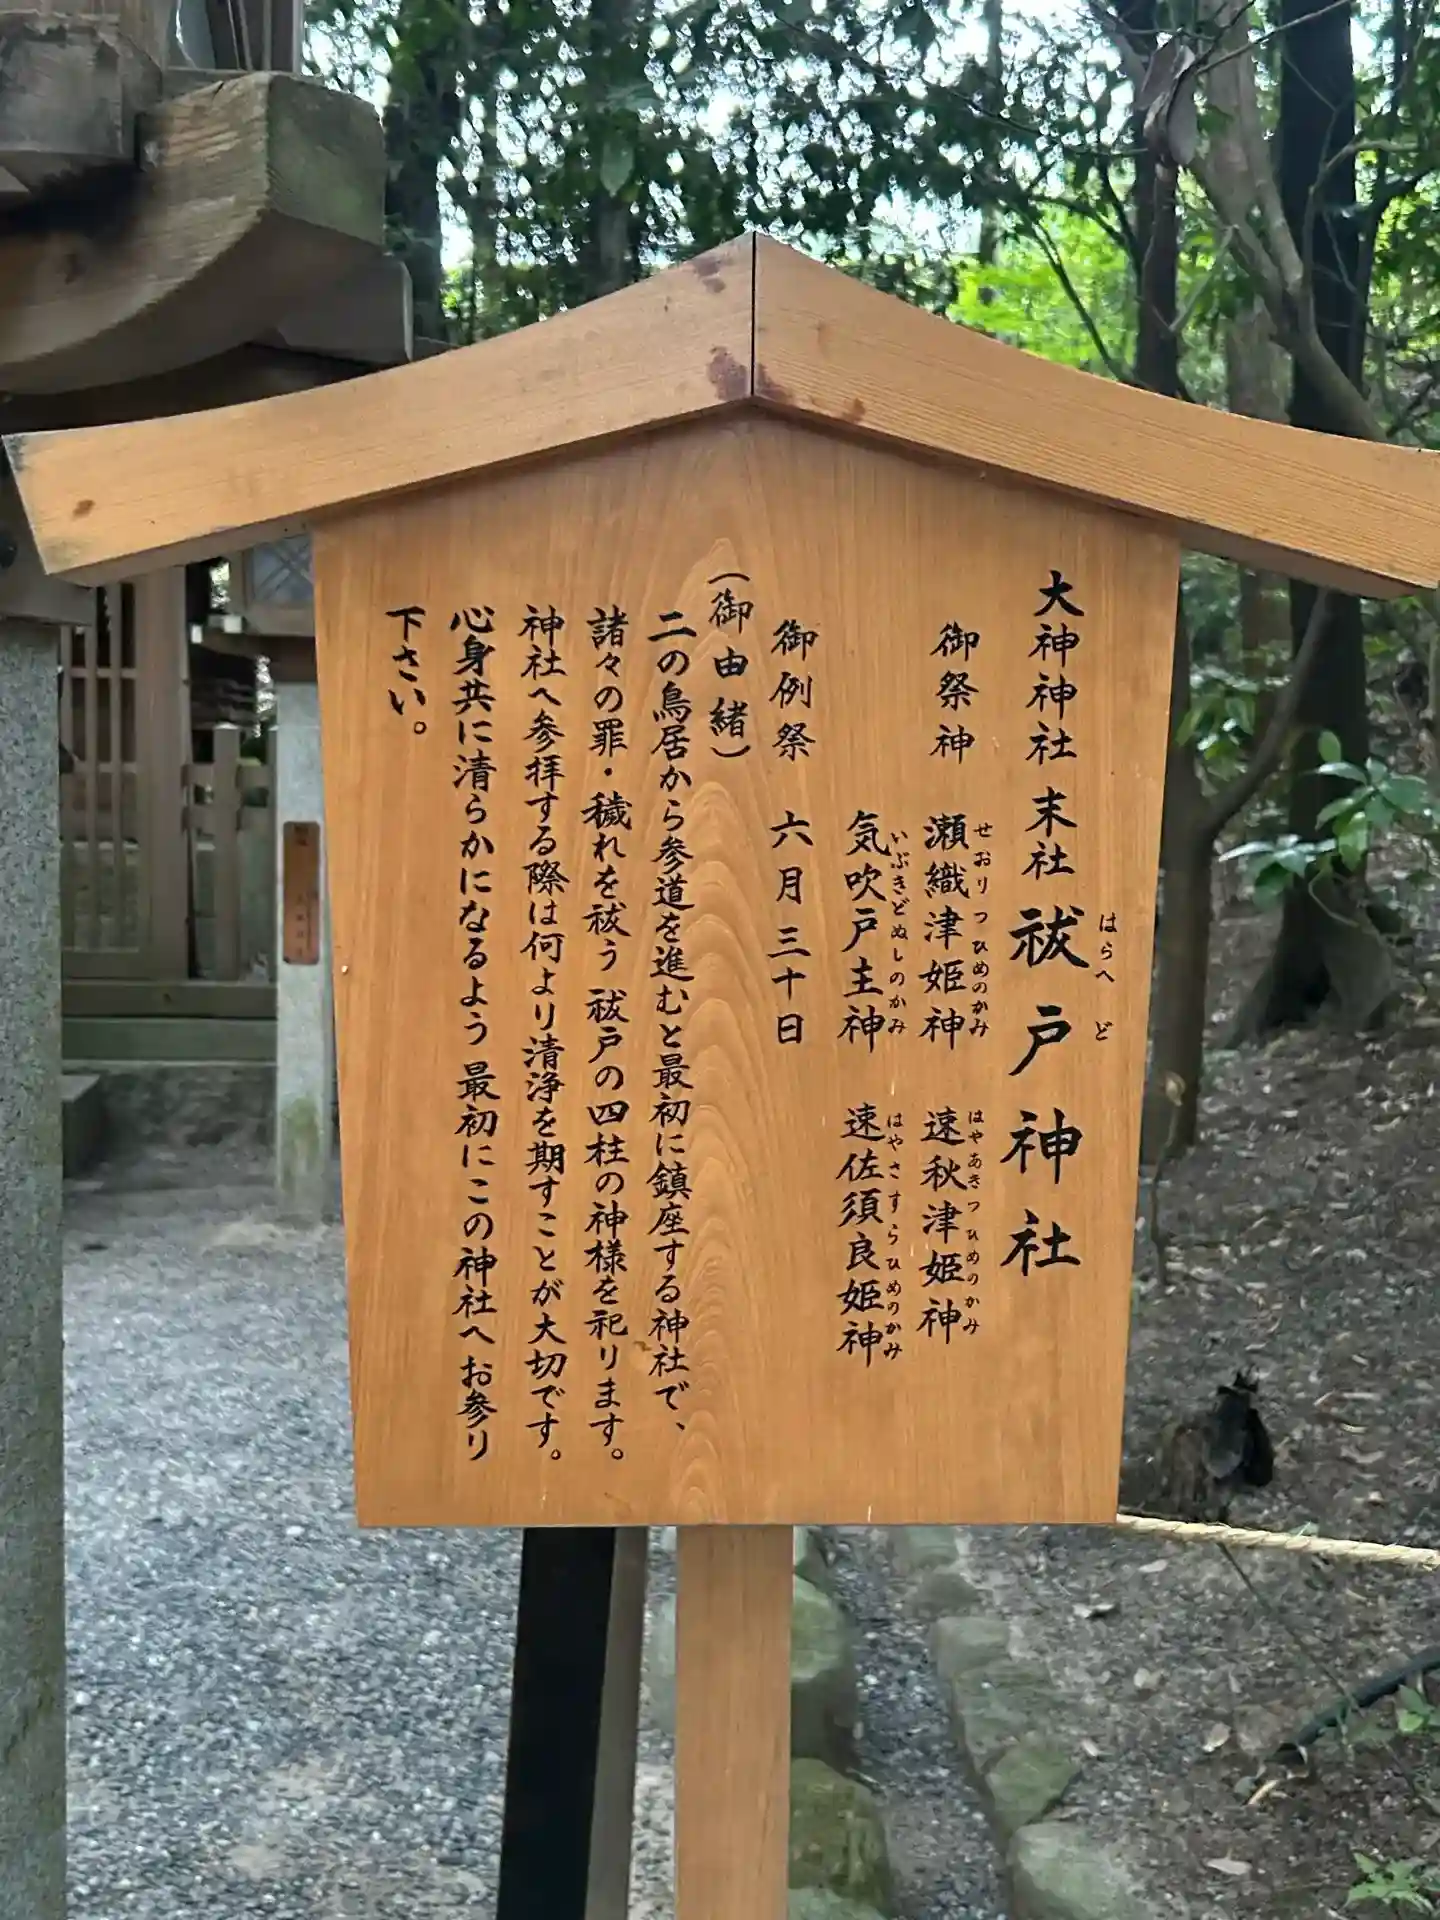 大神神社 末社 祓戸神社
はらへど
御祭神 瀬織津姫神 速秋津姫神
せおりつひめのかみ はやあきつひめのかみ
気吹戸主神 速佐須良姫神
いぶきどぬしのかみ はやさすらひめのかみ
御例祭 六月三十日
(御由緒)
二の鳥居から参道を進むと最初に鎮座する神社で、
諸々の罪・穢れを祓う祓戸の四柱の神様を祀ります。
神社へ参拝する際は何より清浄を期すことが大切です。
心身共に清らかになるよう最初にこの神社へお参り
下さい。